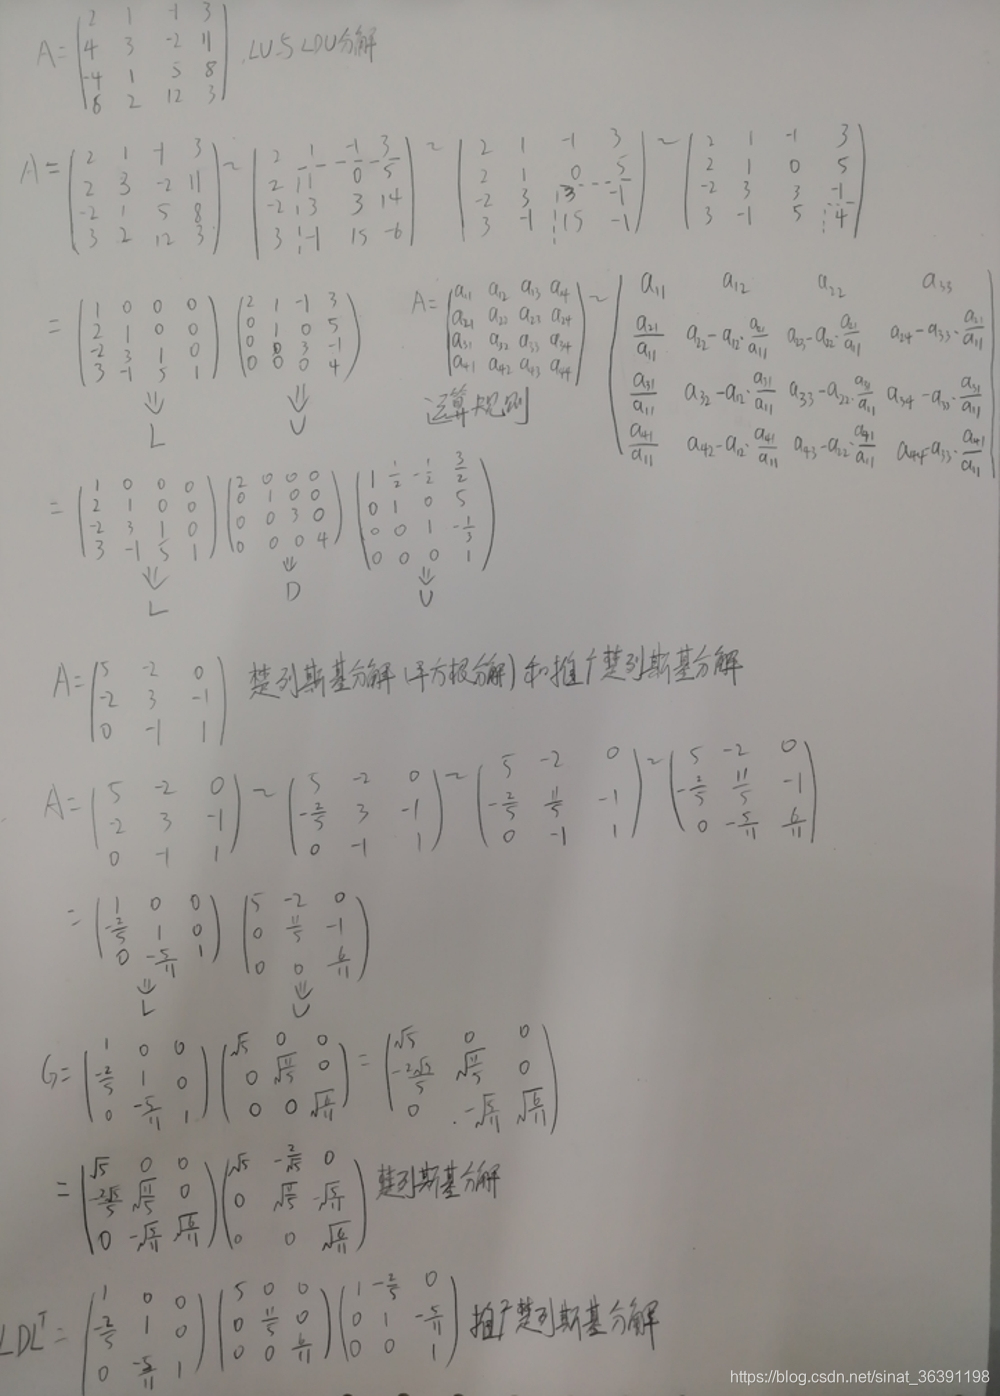 A= (2 1 -1 3; 4 3 -2 11; -4 1 5 8; 6 2 12 3) , LU与LDU分解
A= (2 1 -1 3; 2 3 -2 11; -2 1 5 8; 3 2 12 3) ~ (2 1 -1 3; 2 1 0 5; -2 3 3 14; 3 -1 15 -6) ~ (2 1 -1 3; 2 1 0 5; -2 3 3 -1; 3 -1 15 -1) ~ (2 1 -1 3; 2 1 0 5; -2 3 3 -1; 3 -1 5 4)
= (1 0 0 0; 2 1 0 0; -2 3 1 0; 3 -1 5 1) (2 1 -1 3; 0 1 0 5; 0 0 3 -1; 0 0 0 4)
⇓ L ⇓ U
A= (a11 a12 a13 a14; a21 a22 a23 a24; a31 a32 a33 a34; a41 a42 a43 a44) ~ (a11 a12 a22 a33; a21/a11 a22-a12·a21/a11 a23-a22·a21/a11 a24-a33·a21/a11; a31/a11 a32-a12·a31/a11 a33-a22·a31/a11 a34-a33·a31/a11; a41/a11 a42-a12·a41/a11 a43-a22·a41/a11 a44-a33·a41/a11)
运算规则
= (1 0 0 0; 2 1 0 0; -2 3 1 0; 3 -1 5 1) (2 0 0 0; 0 1 0 0; 0 0 3 0; 0 0 0 4) (1 1/2 -1/2 3/2; 0 1 0 5; 0 0 1 -1/3; 0 0 0 1)
⇓ L ⇓ D ⇓ U
A= (5 -2 0; -2 3 -1; 0 -1 1) 楚列斯基分解(平方根分解)和推广楚列斯基分解
A= (5 -2 0; -2 3 -1; 0 -1 1) ~ (5 -2 0; -2/5 3 -1; 0 -1 1) ~ (5 -2 0; -2/5 11/5 -1; 0 -1 1) ~ (5 -2 0; -2/5 11/5 -1; 0 -5/11 6/11)
= (1 0 0; -2/5 1 0; 0 -5/11 1) (5 -2 0; 0 11/5 -1; 0 0 6/11)
⇓ L ⇓ U
G= (1 0 0; -2/5 1 0; 0 -5/11 1) (√5 0 0; 0 √11/5 0; 0 0 √6/11) = (√5 0 0; -2√5/5 √11/5 0; 0 -√5/11 √6/11)
= (√5 0 0; -2√5/5 √11/5 0; 0 -√5/11 √6/11) (√5 -2/√5 0; 0 √11/5 -√5/11; 0 0 √6/11) 楚列斯基分解
LDL^T = (1 0 0; -2/5 1 0; 0 -5/11 1) (5 0 0; 0 11/5 0; 0 0 6/11) (1 -2/5 0; 0 1 -5/11; 0 0 1) 推广楚列斯基分解
https://blog.csdn.net/sinat_36391198